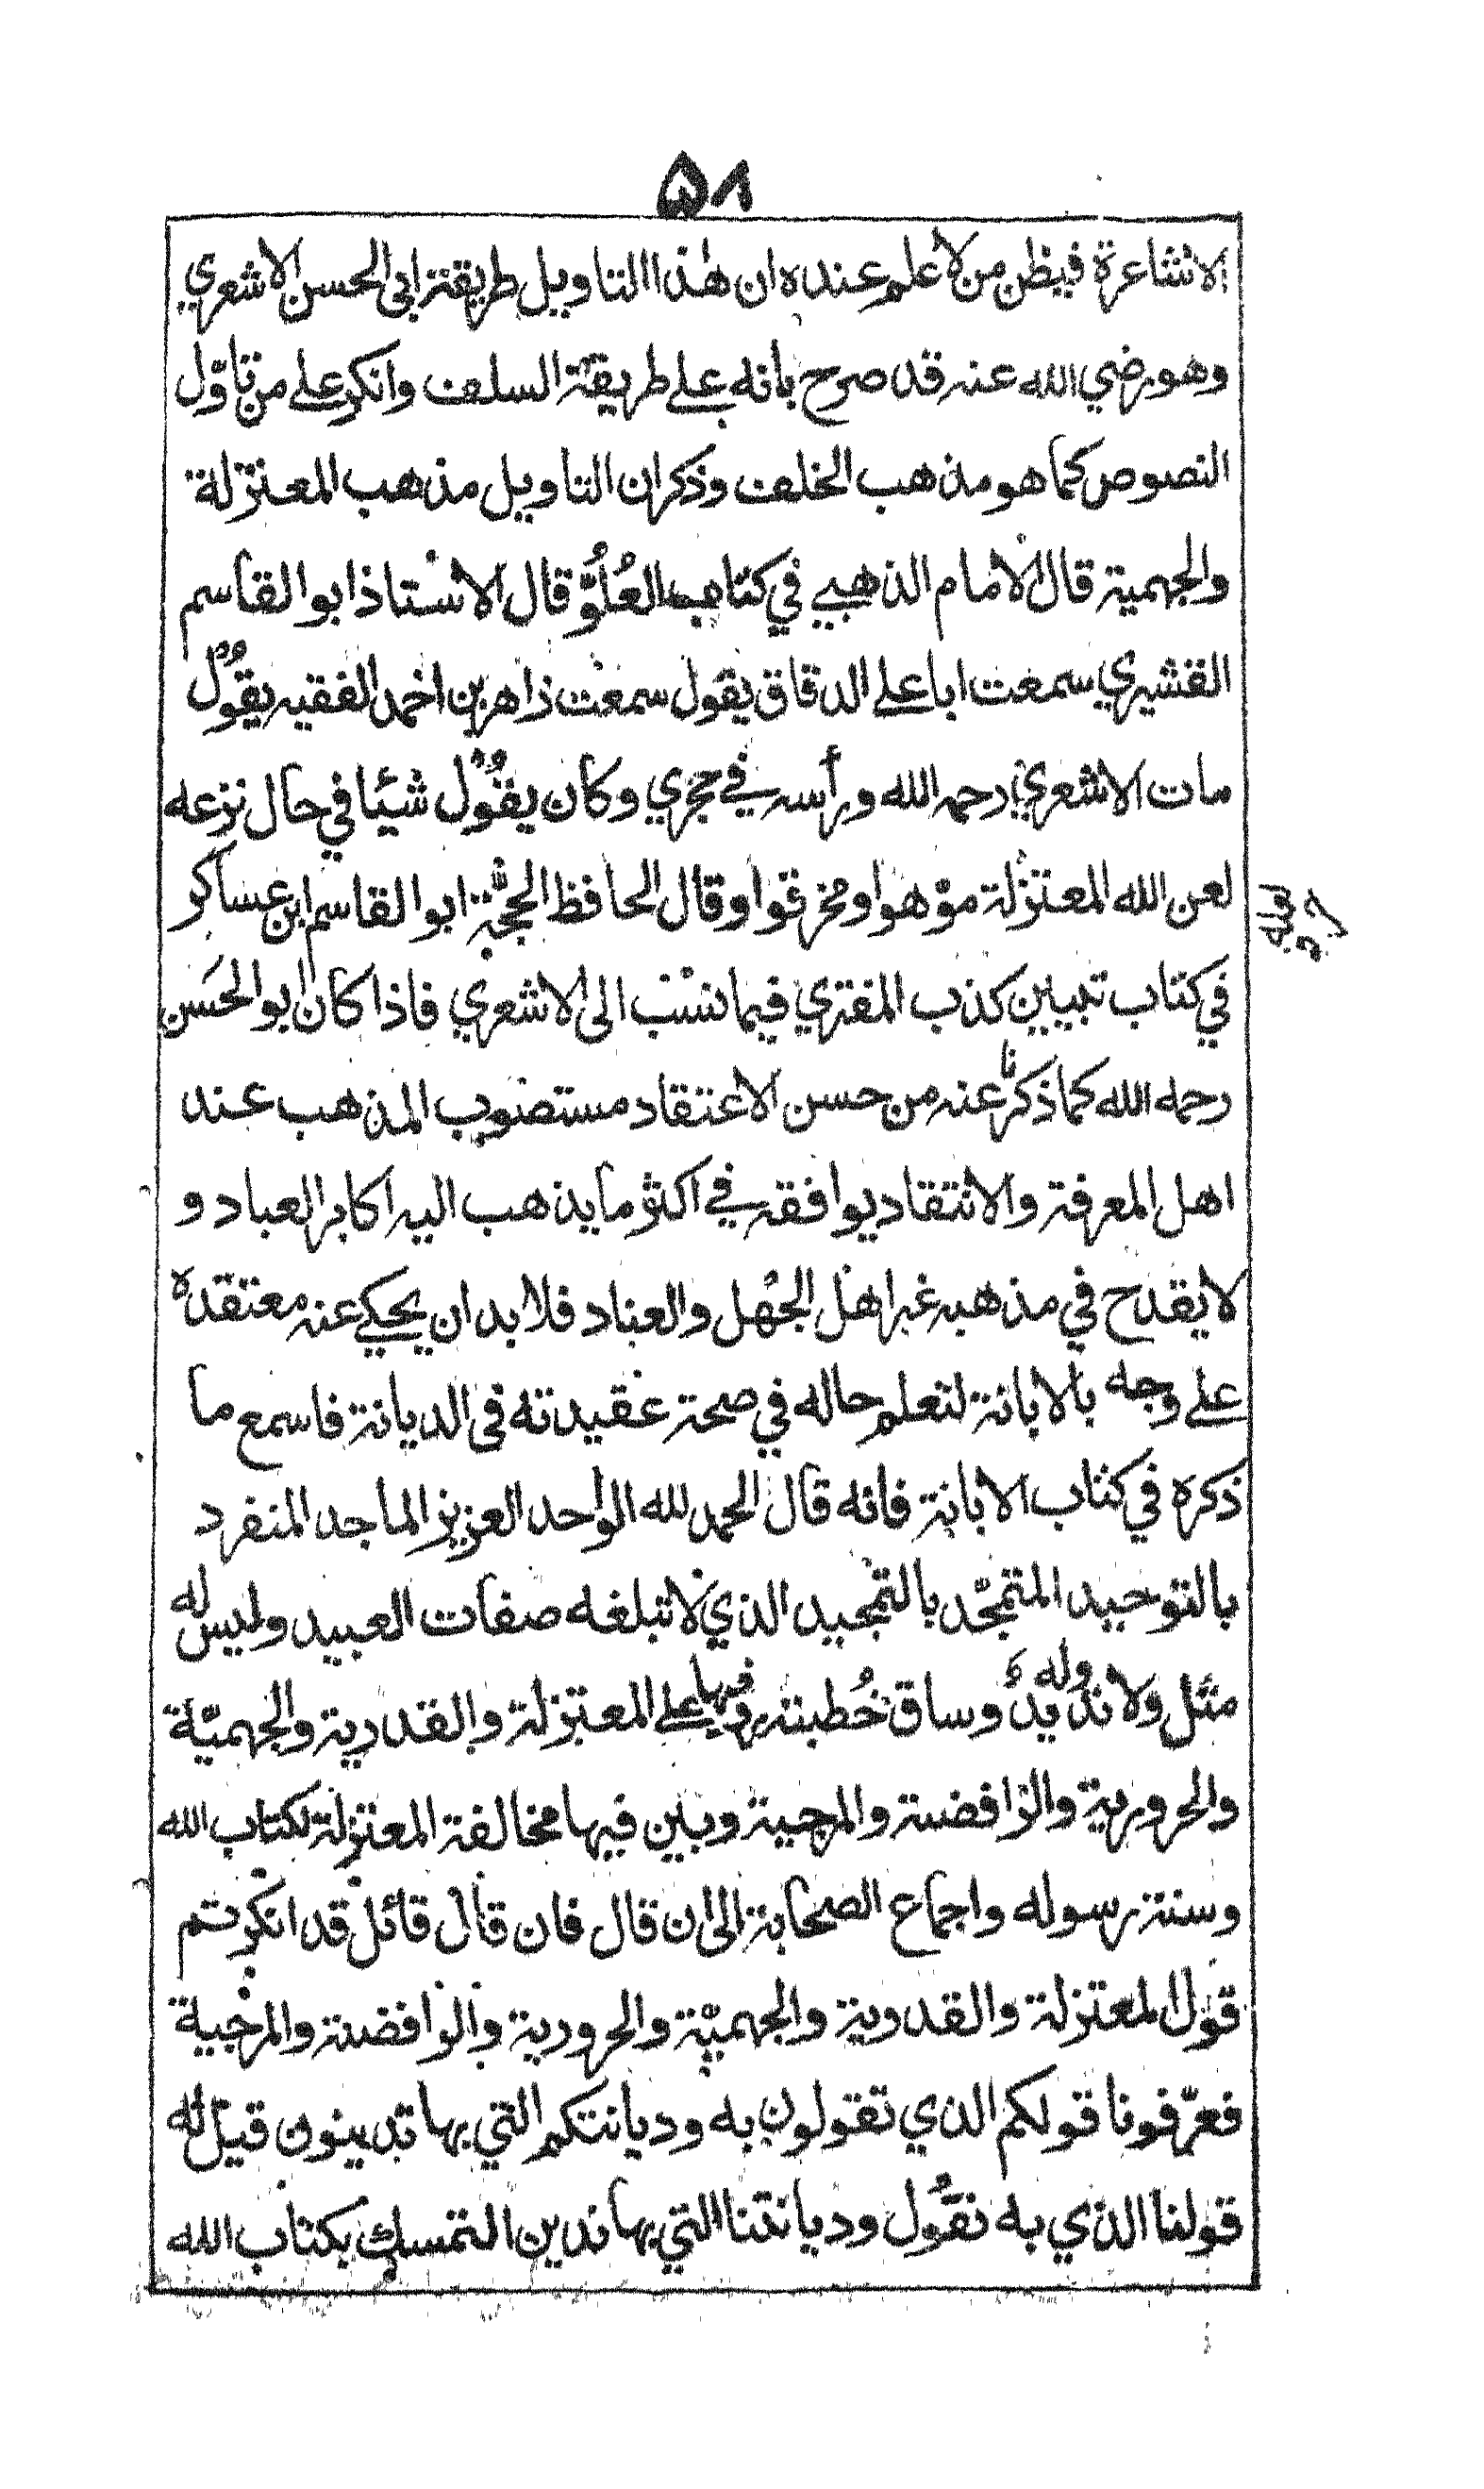 ۵۸
الاشاعرة فيظن من لا علم عنده ان هذا التاويل طريقة ابي الحسن الاشعري
وهو رضي الله عنه قد صرح بانه على طريقة السلف وانكر على من تاوّل
النصوص كما هو مذهب الخلف وذكر ان التاويل مذهب المعتزلة
والجهمية قال الامام الذهبي في كتاب العُلُوّ قال الاستاذ ابو القاسم
القشيري سمعت ابا على الدقاق يقول سمعت زاهر بن احمد الفقيه يقول
مات الاشعري رحمه الله ورأسه في حجري وكان يقول شيئا في حال نزعه
لعن الله المعتزلة موّهوا ومخرقوا وقال الحافظ الحجّة ابو القاسم ابن عساكر
في كتاب تبيين كذب المفتري فيما نسب الى الاشعري فاذا كان ابو الحسن
رحمه الله كما ذكرنا عنه من حسن الاعتقاد مستصوب المذهب عند
اهل المعرفة والانتقاد يوافقه في اكثر ما يذهب اليه اكابر العباد و
لا يقدح في مذهبه غير اهل الجهل والعناد فلا بد ان يحكى عنه معتقده
على وجه بالابانة لتعلم حاله في صحة عقيدته في الديانة فاسمع ما
ذكره في كتاب الابانة فانه قال الحمد لله الواحد العزيز الماجد المنفرد
بالتوحيد المتمجّد بالتمجيد الذي لا تبلغه صفات العبيد وليس له
مثل ولا نديد وساق خُطبته وفيها على المعتزلة والقدرية والجهميّة
والحرورية والرافضة والمرجية وبين فيها مخالفة المعتزلة لكتاب الله
وسنة رسوله واجماع الصحابة الى ان قال فان قال قائل قد انكرتم
قول المعتزلة والقدرية والجهميّة والحرورية والرافضة والمرجية
فعرّفونا قولكم الذي تقولون به وديانتكم التي بها تدينون قيل له
قولنا الذي به نقول وديانتنا التي بها ندين التمسك بكتاب الله